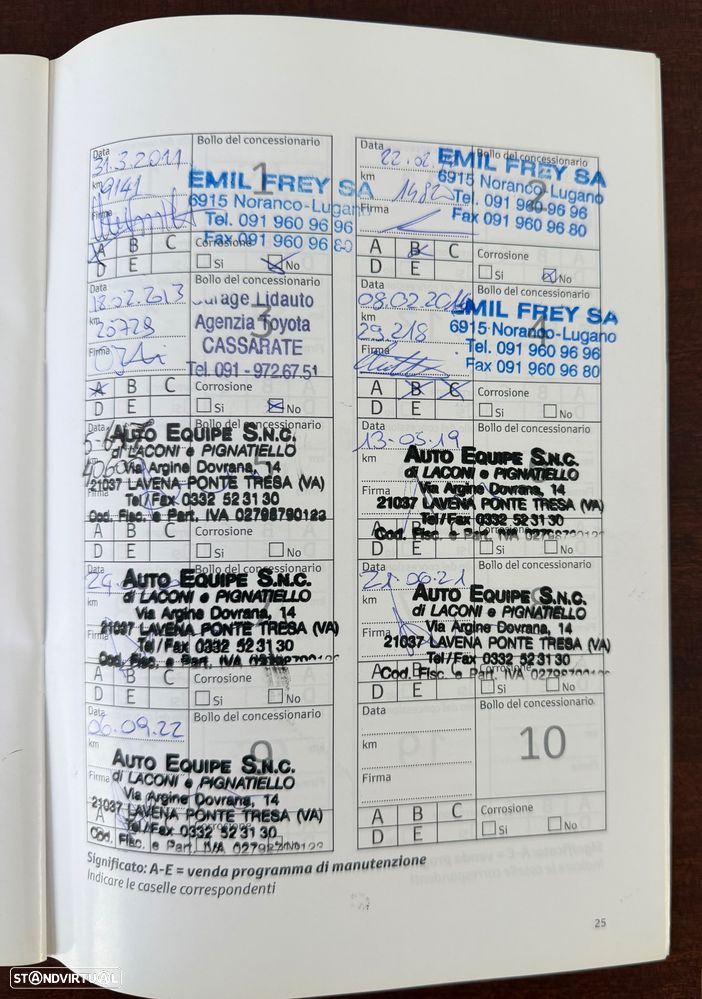 Data
Bollo del concessionario
31.3.2011
km
9141
1
EMIL FREY SA
6915 Noranco-Lugano
Tel. 091 960 96 96
Fax 091 960 96 80
Firma
A B C
D E
Corrosione
Si No
Data
Bollo del concessionario
22.02.
km
2
EMIL FREY SA
6915 Noranco-Lugano
Tel. 091 960 96 96
Fax 091 960 96 80
Firma
A B C
D E
Corrosione
Si No
Data
Bollo del concessionario
18.02.2013
km
20729
3
Garage Lidauto
Agenzia Toyota
CASSARATE
Tel 091 - 972.67.51
Firma
A B C
D E
Corrosione
Si No
Data
Bollo del concessionario
08.02.2014
km
29.218
4
EMIL FREY SA
6915 Noranco-Lugano
Tel. 091 960 96 96
Fax 091 960 96 80
Firma
A B C
D E
Corrosione
Si No
AUTO EQUIPE S.N.C.
di LACONI e PIGNATIELLO
Via Argine Dovrana, 14
21037 LAVENA PONTE TRESA (VA)
Tel/Fax 0332 52 31 30
Cod. Fisc. e Part. IVA 02798790123
A B C
D E
Si No
Data
Bollo del concessionario
13-05-19
km
AUTO EQUIPE S.N.C.
di LACONI e PIGNATIELLO
Via Argine Dovrana, 14
21037 LAVENA PONTE TRESA (VA)
Tel/Fax 0332 52 31 30
Cod. Fisc. e Part. IVA
Firma
A B C
D E
Si No
Data
km
AUTO EQUIPE S.N.C.
di LACONI e PIGNATIELLO
Via Argine Dovrana, 14
21037 LAVENA PONTE TRESA (VA)
Tel/Fax 0332 52 31 30
Cod. Fisc. e Part. IVA
Firma
A B C
D E
Si No
Data
Bollo del concessionario
21.06.21
km
AUTO EQUIPE S.N.C.
di LACONI e PIGNATIELLO
Via Argine Dovrana, 14
21037 LAVENA PONTE TRESA (VA)
Tel/Fax 0332 52 31 30
Cod. Fisc. e Part. IVA
Firma
A B C
D E
Corrosione
Si No
Data
Bollo del concessionario
06.09.22
km
9
AUTO EQUIPE S.N.C.
di LACONI e PIGNATIELLO
Via Argine Dovrana, 14
21037 LAVENA PONTE TRESA (VA)
Tel/Fax 0332 52 31 30
Cod. Fisc. e Part. IVA
Firma
A B C
D E
Corrosione
Data
Bollo del concessionario
km
10
Firma
A B C
D E
Corrosione
Si No
Significato: A-E = venda programma di manutenzione
Indicare le caselle corrispondenti
25
STANDVIRTUAL